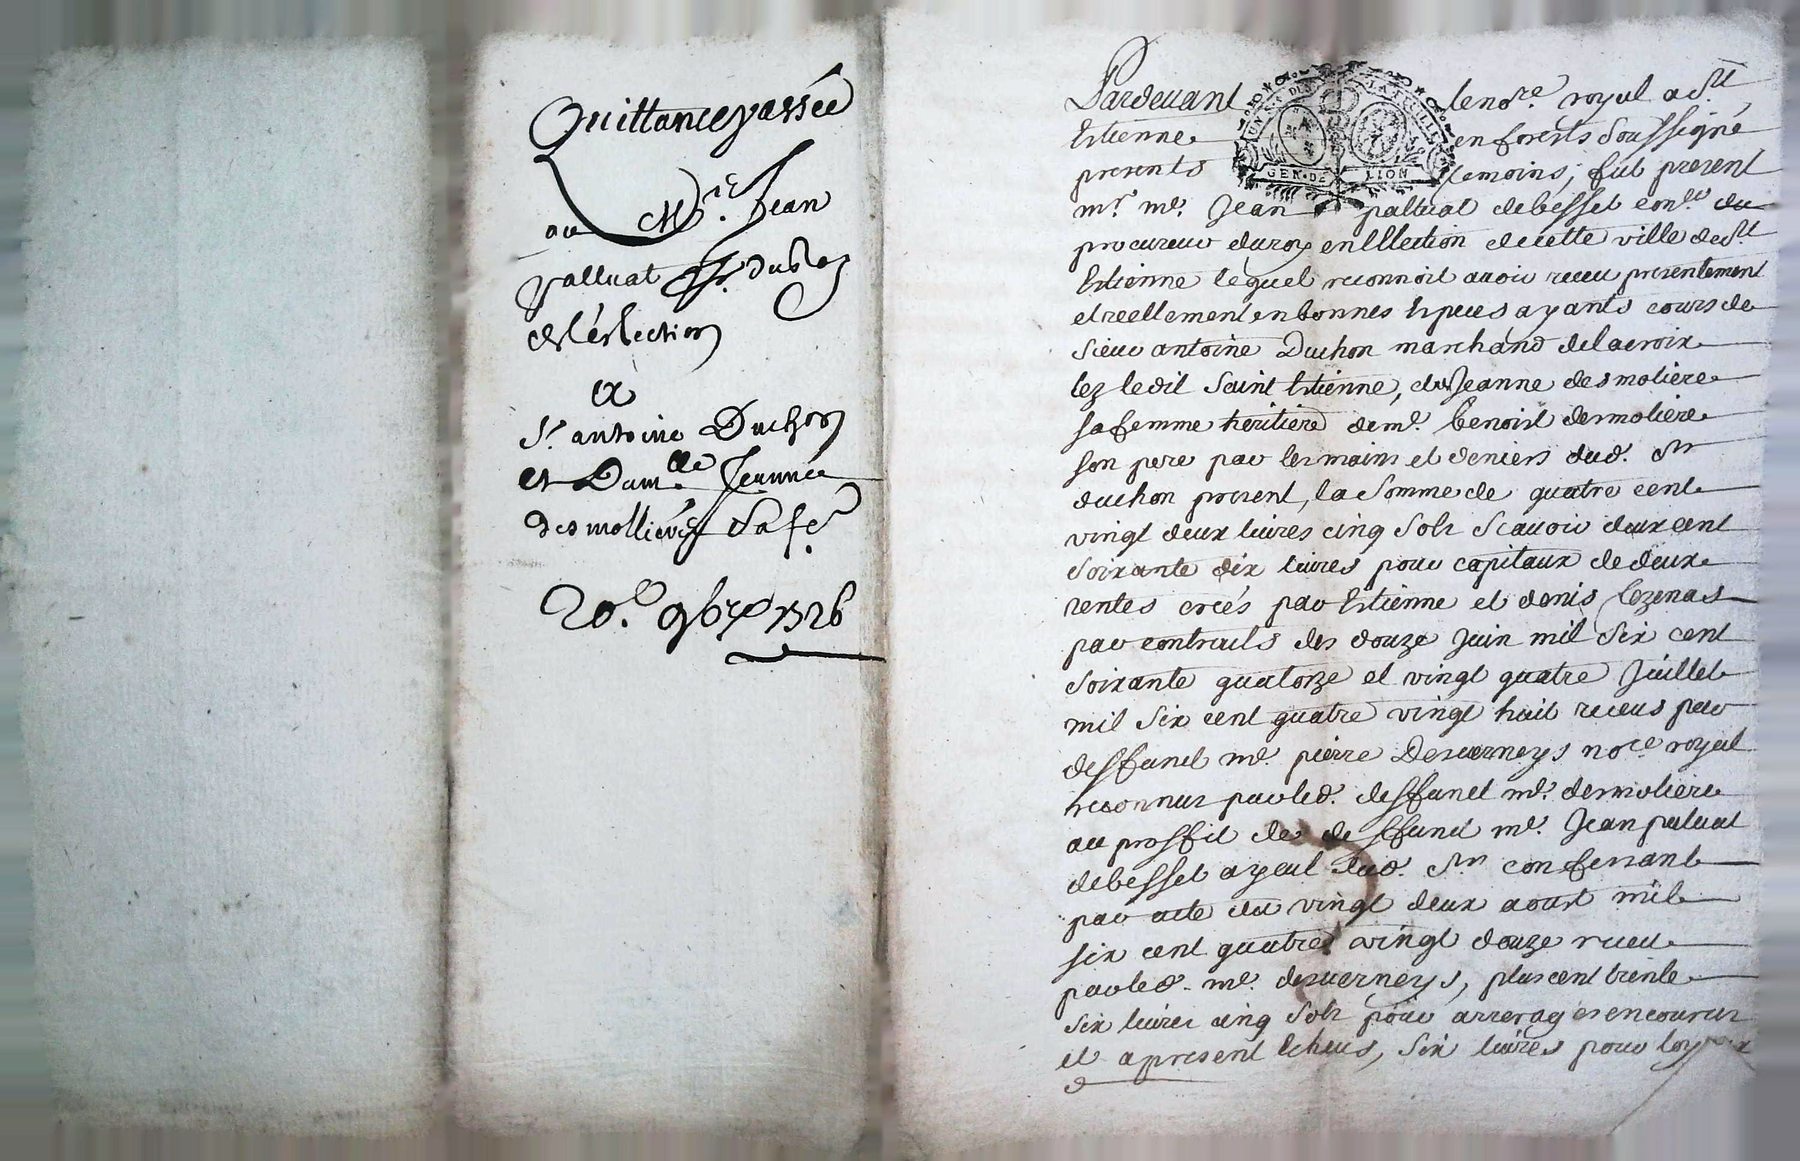 Quittance passée
au Mre Jean
palluat pr. du Roy
de l'éslection
a
Sr. antoine Duchon
et Damlle Jeanne
desmollieres sa fe.
20e. 9bre 1726
Pardevant le nore. royal a St
Estienne en forests soussigné
presents temoins; fut present
mr. me. Jean palluat debesset conler du
procureur du roy en Ellection de cette ville de St
Estienne lequel reconnoit avoir receu presentement
et reellement en bonnes Especes ayants cours de
sieur antoine Duchon marchand de la croix
lez ledit Saint Estienne, de Jeanne desmoliere
sa femme heritiere de me. benoist desmoliere
son pere par les mains et deniers dud. Sr
duchon present, la somme de quatre cent
vingt deux livres cinq sols scavoir deux cent
soixante dix livres pour capitaux de deux
rentes creés par Estienne et denis Cozenas
par contrats des douze Juin mil six cent
soixante quatorze et vingt quatre Juillet
mil six cent quatre vingt huit receus par
deffunct me. pierre Desverneys nore royal
reconnus par led. deffunct me. desmoliere
au proffit de deffunct me. Jean paluat
debesset ayeul dud. Sr confessant
par acte du vingt deux aoust mil
six cent quatre vingt douze receu
par led. me. desverneys, plus cent trente
six livres cinq sols pour arrerages encourus
et a present Echeus, six livres pour loyaux
GEN·DE LION